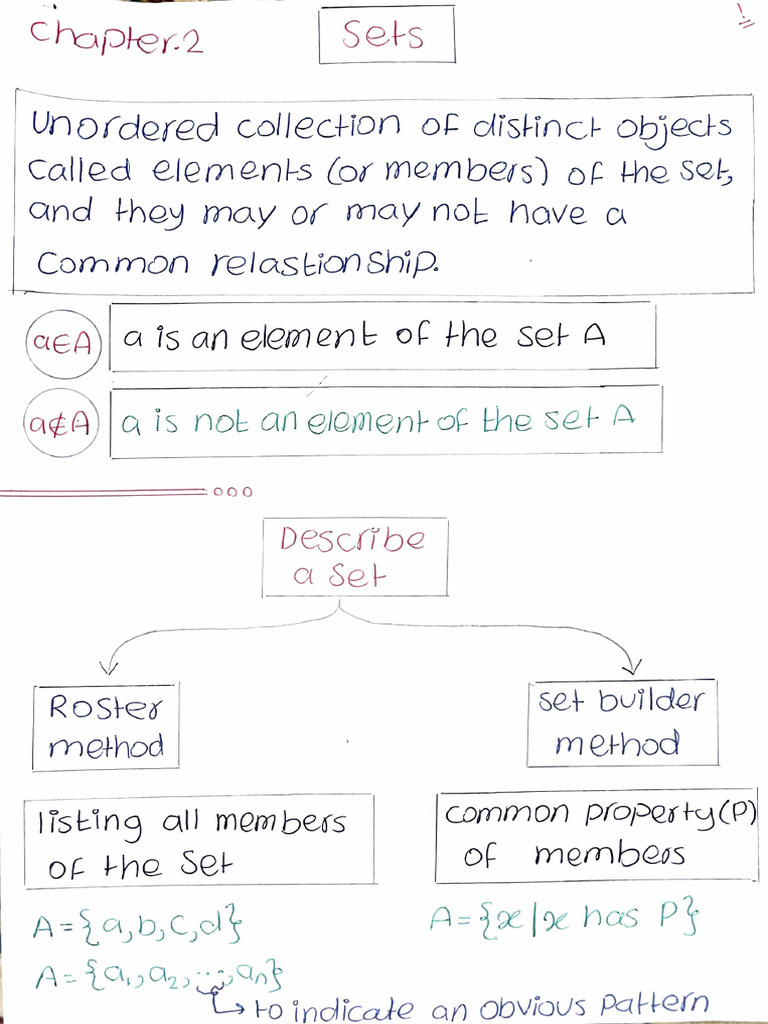 Chapter.2
Sets
Unordered collection of distinct objects
called elements (or members) of the set,
and they may or may not have a
common relastionship.
a∈A
a is an element of the set A
a∉A
a is not an element of the set A
Describe
a set
Roster
method
set builder
method
listing all members
of the set
common property(P)
of members
A={a,b,c,d}
A={x|x has P}
A={a₁,a₂,...,an}
to indicate an obvious pattern